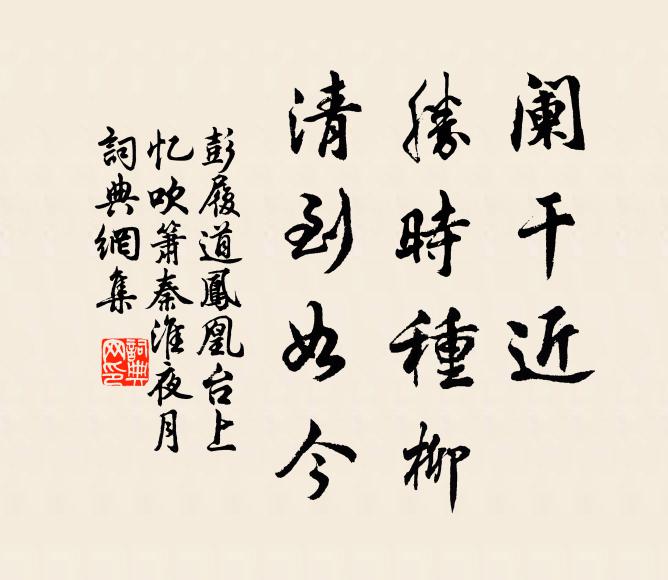 阑干近
勝時種柳
清到如今
彭履道鳳凰台上
忆吹簫秦淮夜月
詞典網集
詞典
网印